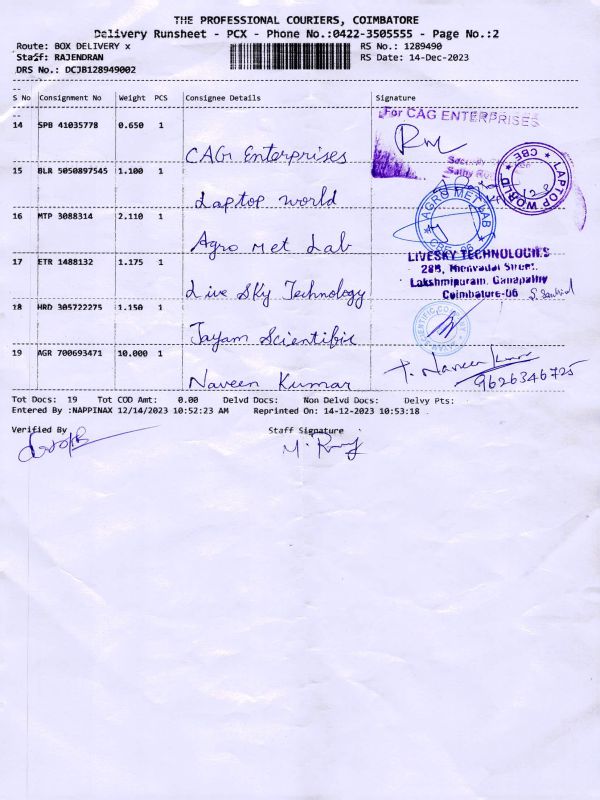 THE PROFESSIONAL COURIERS, COIMBATORE
Delivery Runsheet - PCX - Phone No.:0422-3505555 - Page No.:2
Route: BOX DELIVERY x
RS No.: 1289490
Staff: RAJENDRAN
RS Date: 14-Dec-2023
DRS No.: DCJB128949002
S No Consignment No Weight PCS Consignee Details Signature
14 SPB 41035778 0.650 1
For CAG ENTERPRISES
CAG Enterprises
15 BLR 5050897545 1.100 1
LAPTOP WORLD * CBE *
Laptop world
16 MTP 3088314 2.110 1
AGRO MET LAB
CBE - 06
Agro Met Lab
17 ETR 1488132 1.175 1
LIVESKY TECHNOLOGIES
28B, Street,
Lakshmipuram, Ganapathy
Coimbatore-06
Live Sky Technology
18 HRD 305722275 1.150 1
SCIENTIFIC
Jayam Scientific
19 AGR 700693471 10.000 1
P. Naveen Kumar
9626346725
Naveen Kumar
Tot Docs: 19 Tot COD Amt: 0.00 Delvd Docs: Non Delvd Docs: Delvy Pts:
Entered By :NAPPINAX 12/14/2023 10:52:23 AM Reprinted On: 14-12-2023 10:53:18
Verified By Staff Signature